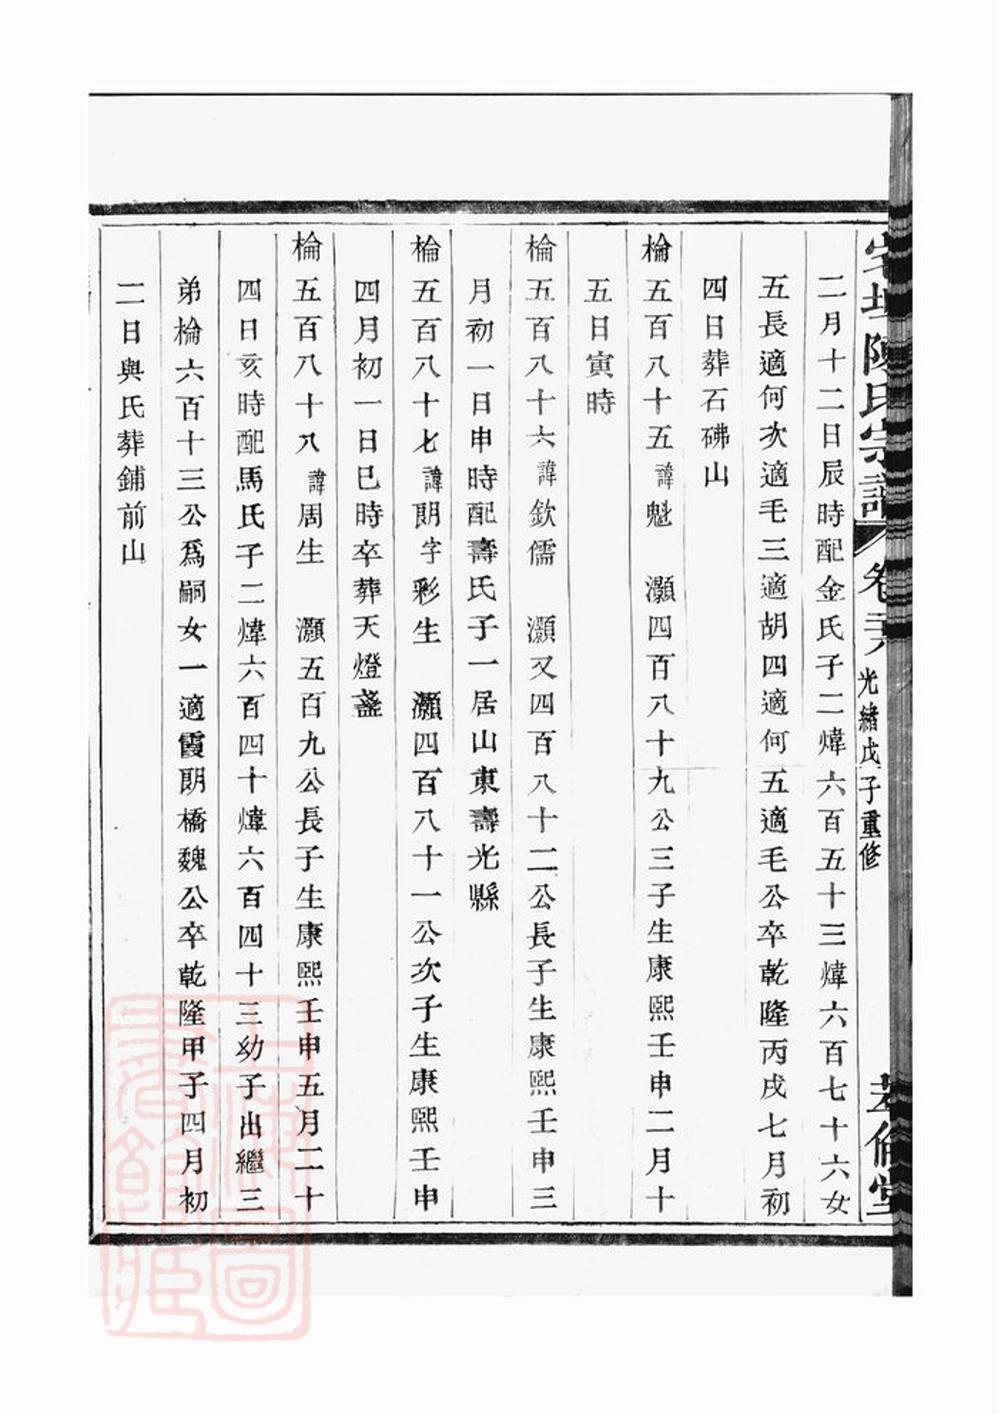 宅埠陳氏宗譜 卷 光緒戊子重修 萃修堂
二月十二日辰時配金氏子二煒六百五十三煒六百七十六女
五長適何次適毛三適胡四適何五適毛公卒乾隆丙戌七月初
四日葬石砩山
棆五百八十五諱魁 灝四百八十九公三子生康熙壬申二月十
五日寅時
棆五百八十六諱欽儒 灝又四百八十二公長子生康熙壬申三
月初一日申時配壽氏子一居山東壽光縣
棆五百八十七諱朗字彩生 灝四百八十一公次子生康熙壬申
四月初一日巳時卒葬天燈盞
棆五百八十八諱周生 灝五百九公長子生康熙壬申五月二十
四日亥時配馬氏子二煒六百四十煒六百四十三幼子出繼三
弟棆六百十三公爲嗣女一適霞朗橋魏公卒乾隆甲子四月初
二日與氏葬鋪前山